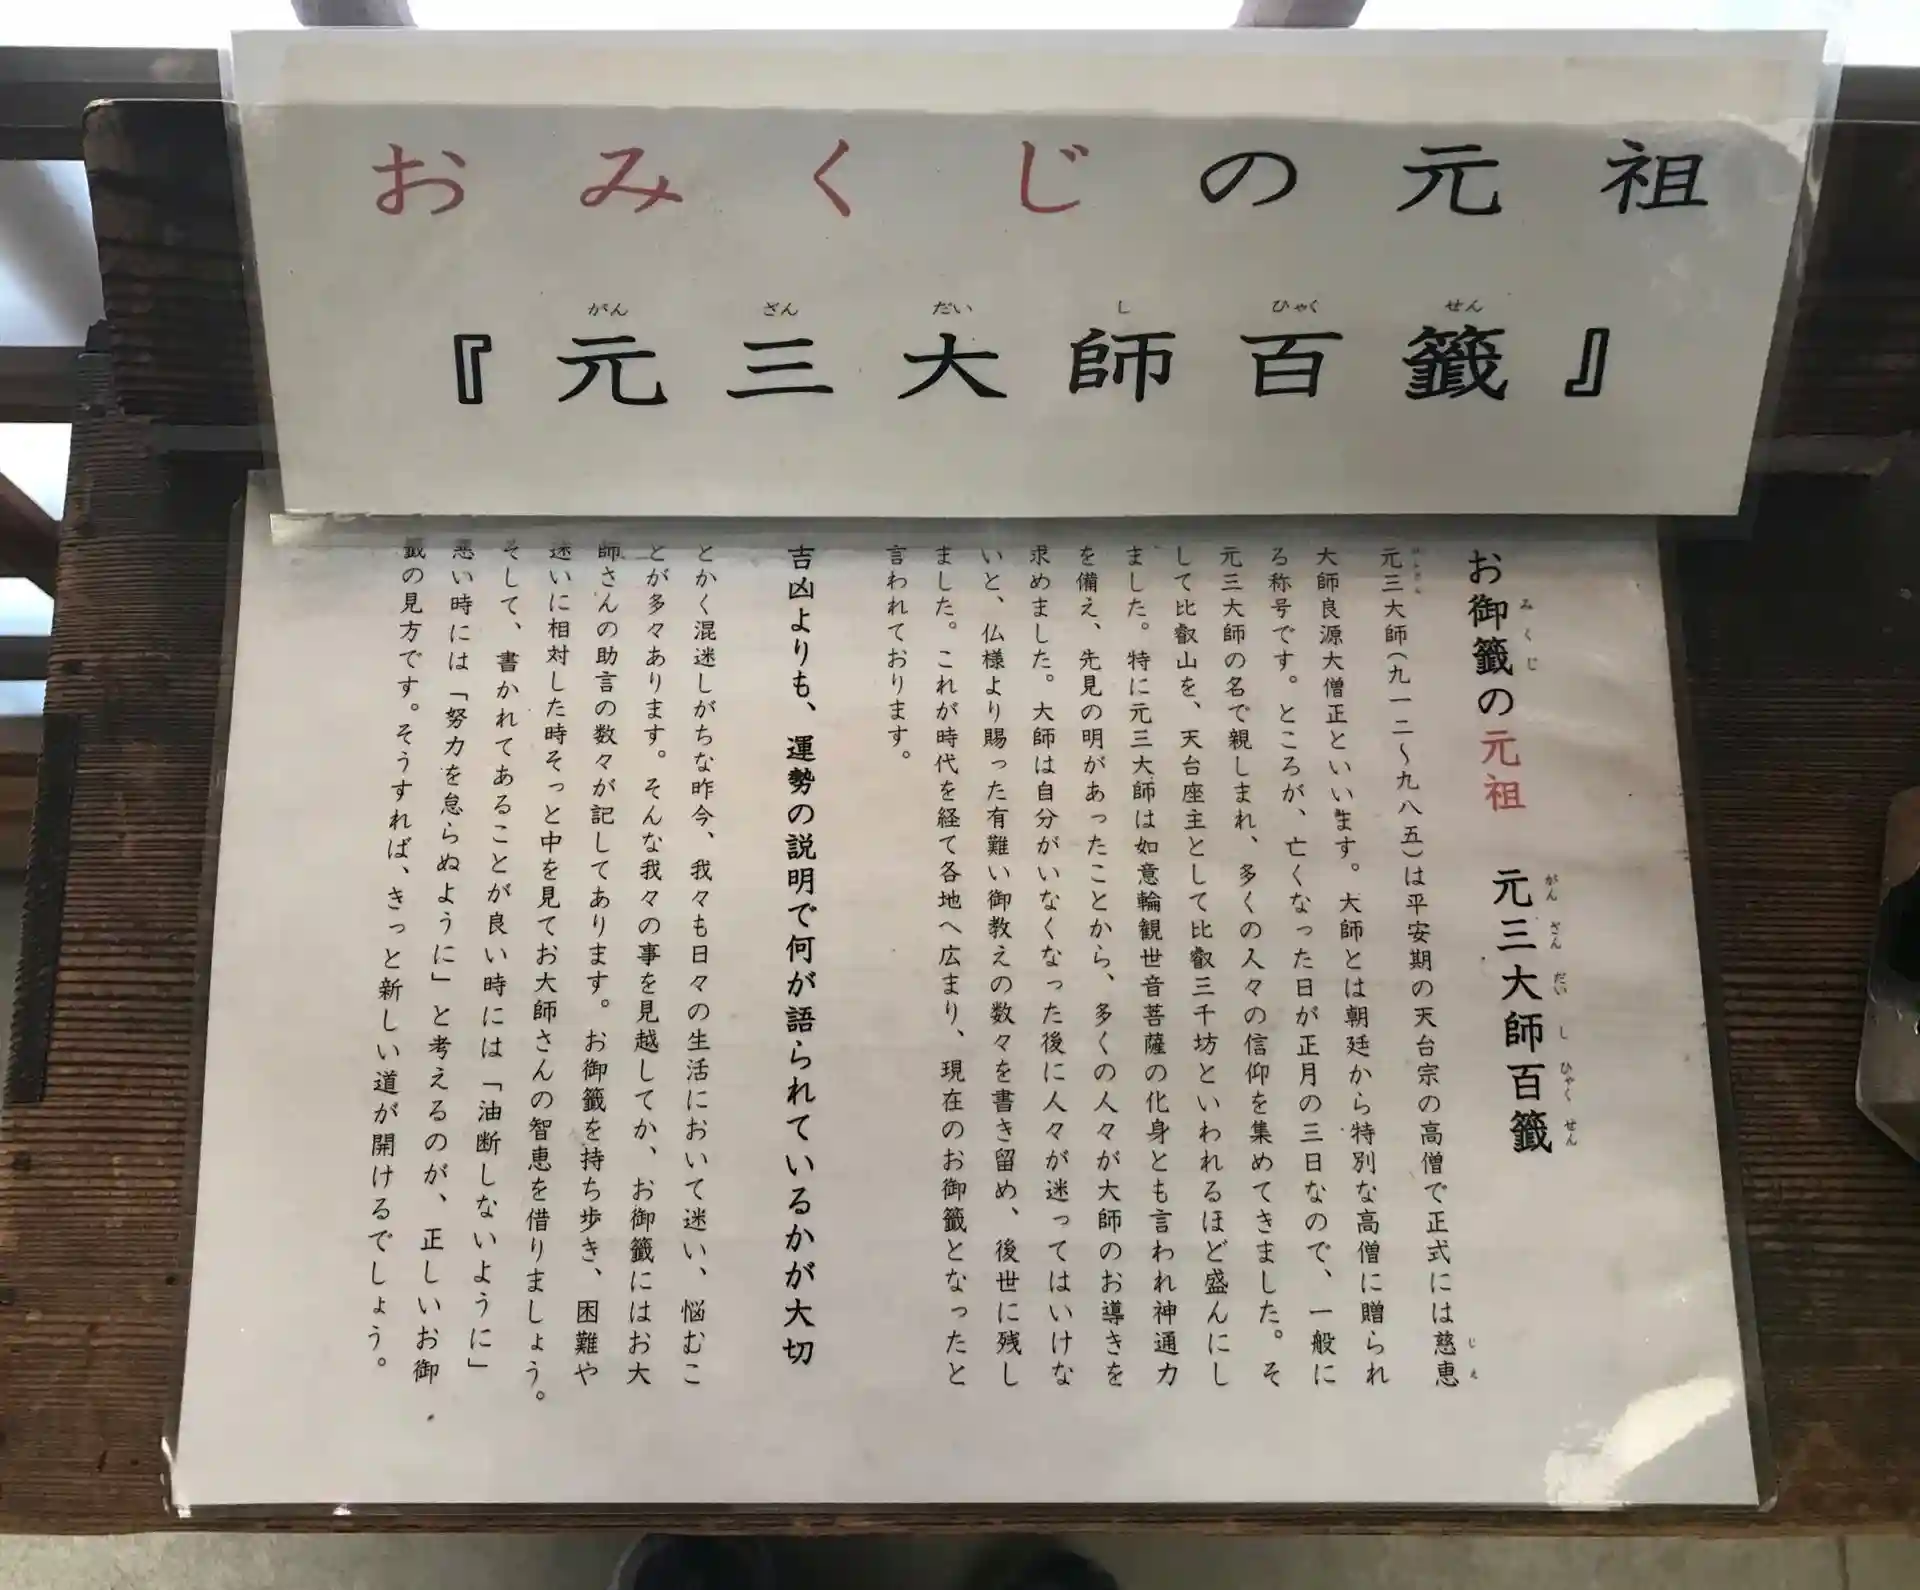 おみくじの元祖
がんざんだいしひゃくせん
『元三大師百籤』
みくじ がんざんだいしひゃくせん
お御籤の元祖 元三大師百籤
がんざん じえ
元三大師(九一二～九八五)は平安期の天台宗の高僧で正式には慈恵
大師良源大僧正といいます。大師とは朝廷から特別な高僧に贈られ
る称号です。ところが、亡くなった日が正月の三日なので、一般に
元三大師の名で親しまれ、多くの人々の信仰を集めてきました。そ
して比叡山を、天台座主として比叡三千坊といわれるほど盛んにし
ました。特に元三大師は如意輪観世音菩薩の化身とも言われ神通力
を備え、先見の明があったことから、多くの人々が大師のお導きを
求めました。大師は自分がいなくなった後に人々が迷ってはいけな
いと、仏様より賜った有難い御教えの数々を書き留め、後世に残し
ました。これが時代を経て各地へ広まり、現在のお御籤となったと
言われております。
吉凶よりも、運勢の説明で何が語られているかが大切
とかく混迷しがちな昨今、我々も日々の生活において迷い、悩むこ
とが多々あります。そんな我々の事を見越してか、お御籤にはお大
師さんの助言の数々が記してあります。お御籤を持ち歩き、困難や
迷いに相対した時そっと中を見てお大師さんの智恵を借りましょう。
そして、書かれてあることが良い時には「油断しないように」
悪い時には「努力を怠らぬように」と考えるのが、正しいお御
籤の見方です。そうすれば、きっと新しい道が開けるでしょう。